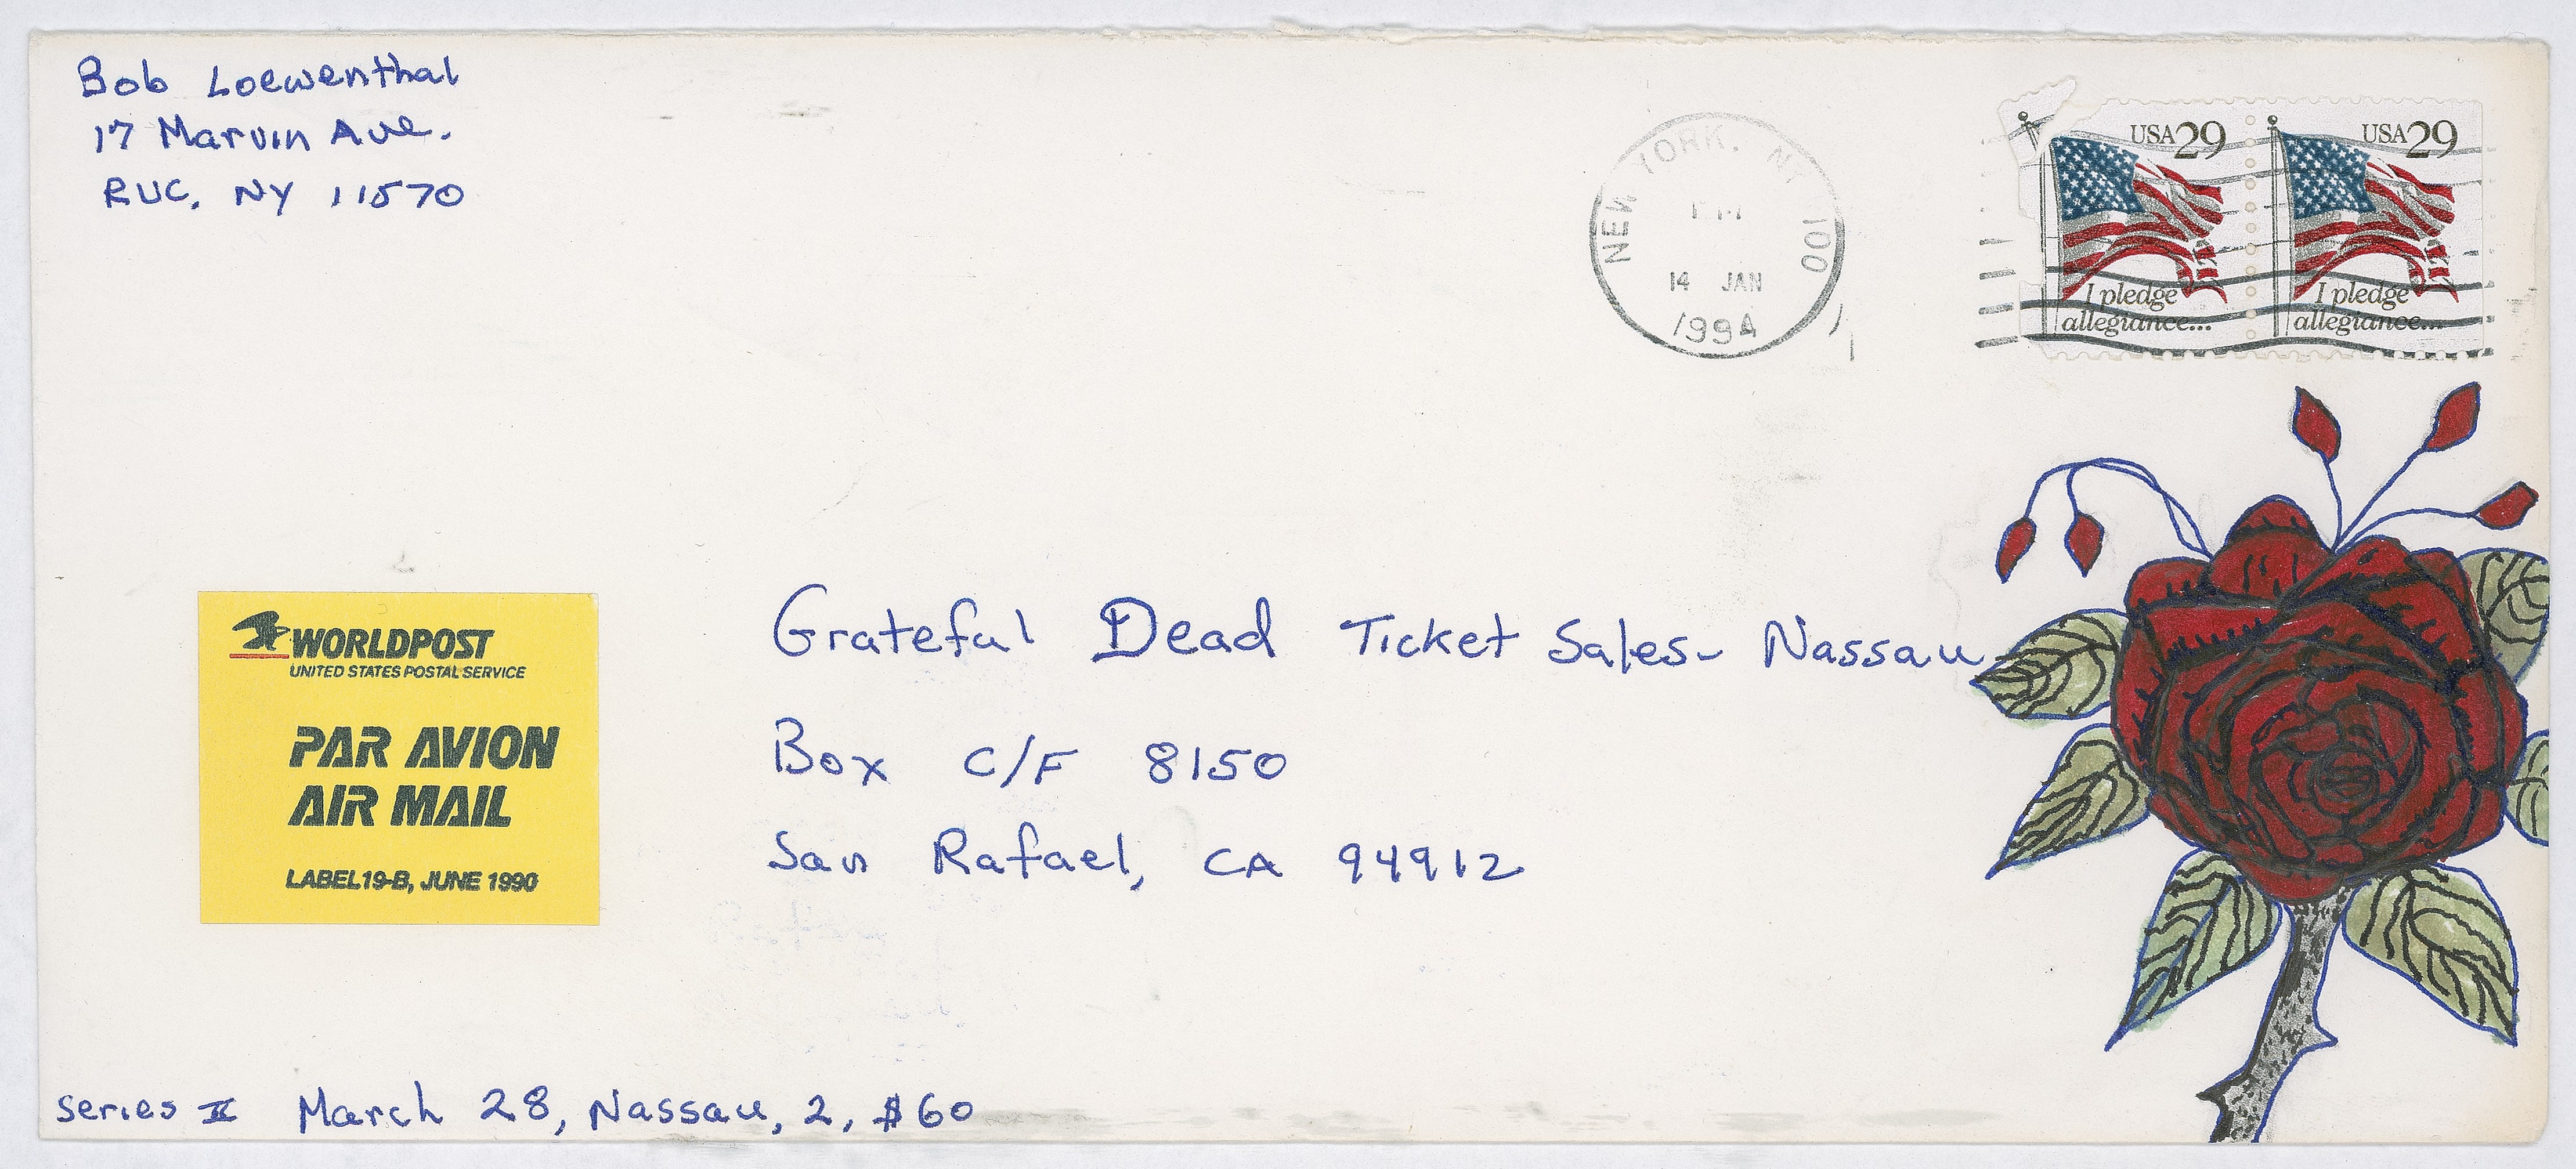 Bob Loewenthal
17 Marvin Ave.
RVC, NY 11570
NEW YORK, NY 100
PM
14 JAN
1994
USA29
I pledge
allegiance...
USA29
I pledge
allegiance...
WORLDPOST
UNITED STATES POSTAL SERVICE
PAR AVION
AIR MAIL
LABEL 19-B, JUNE 1990
Grateful Dead Ticket Sales- Nassau
Box C/F 8150
San Rafael, CA 94912
Series II March 28, Nassau, 2, $60